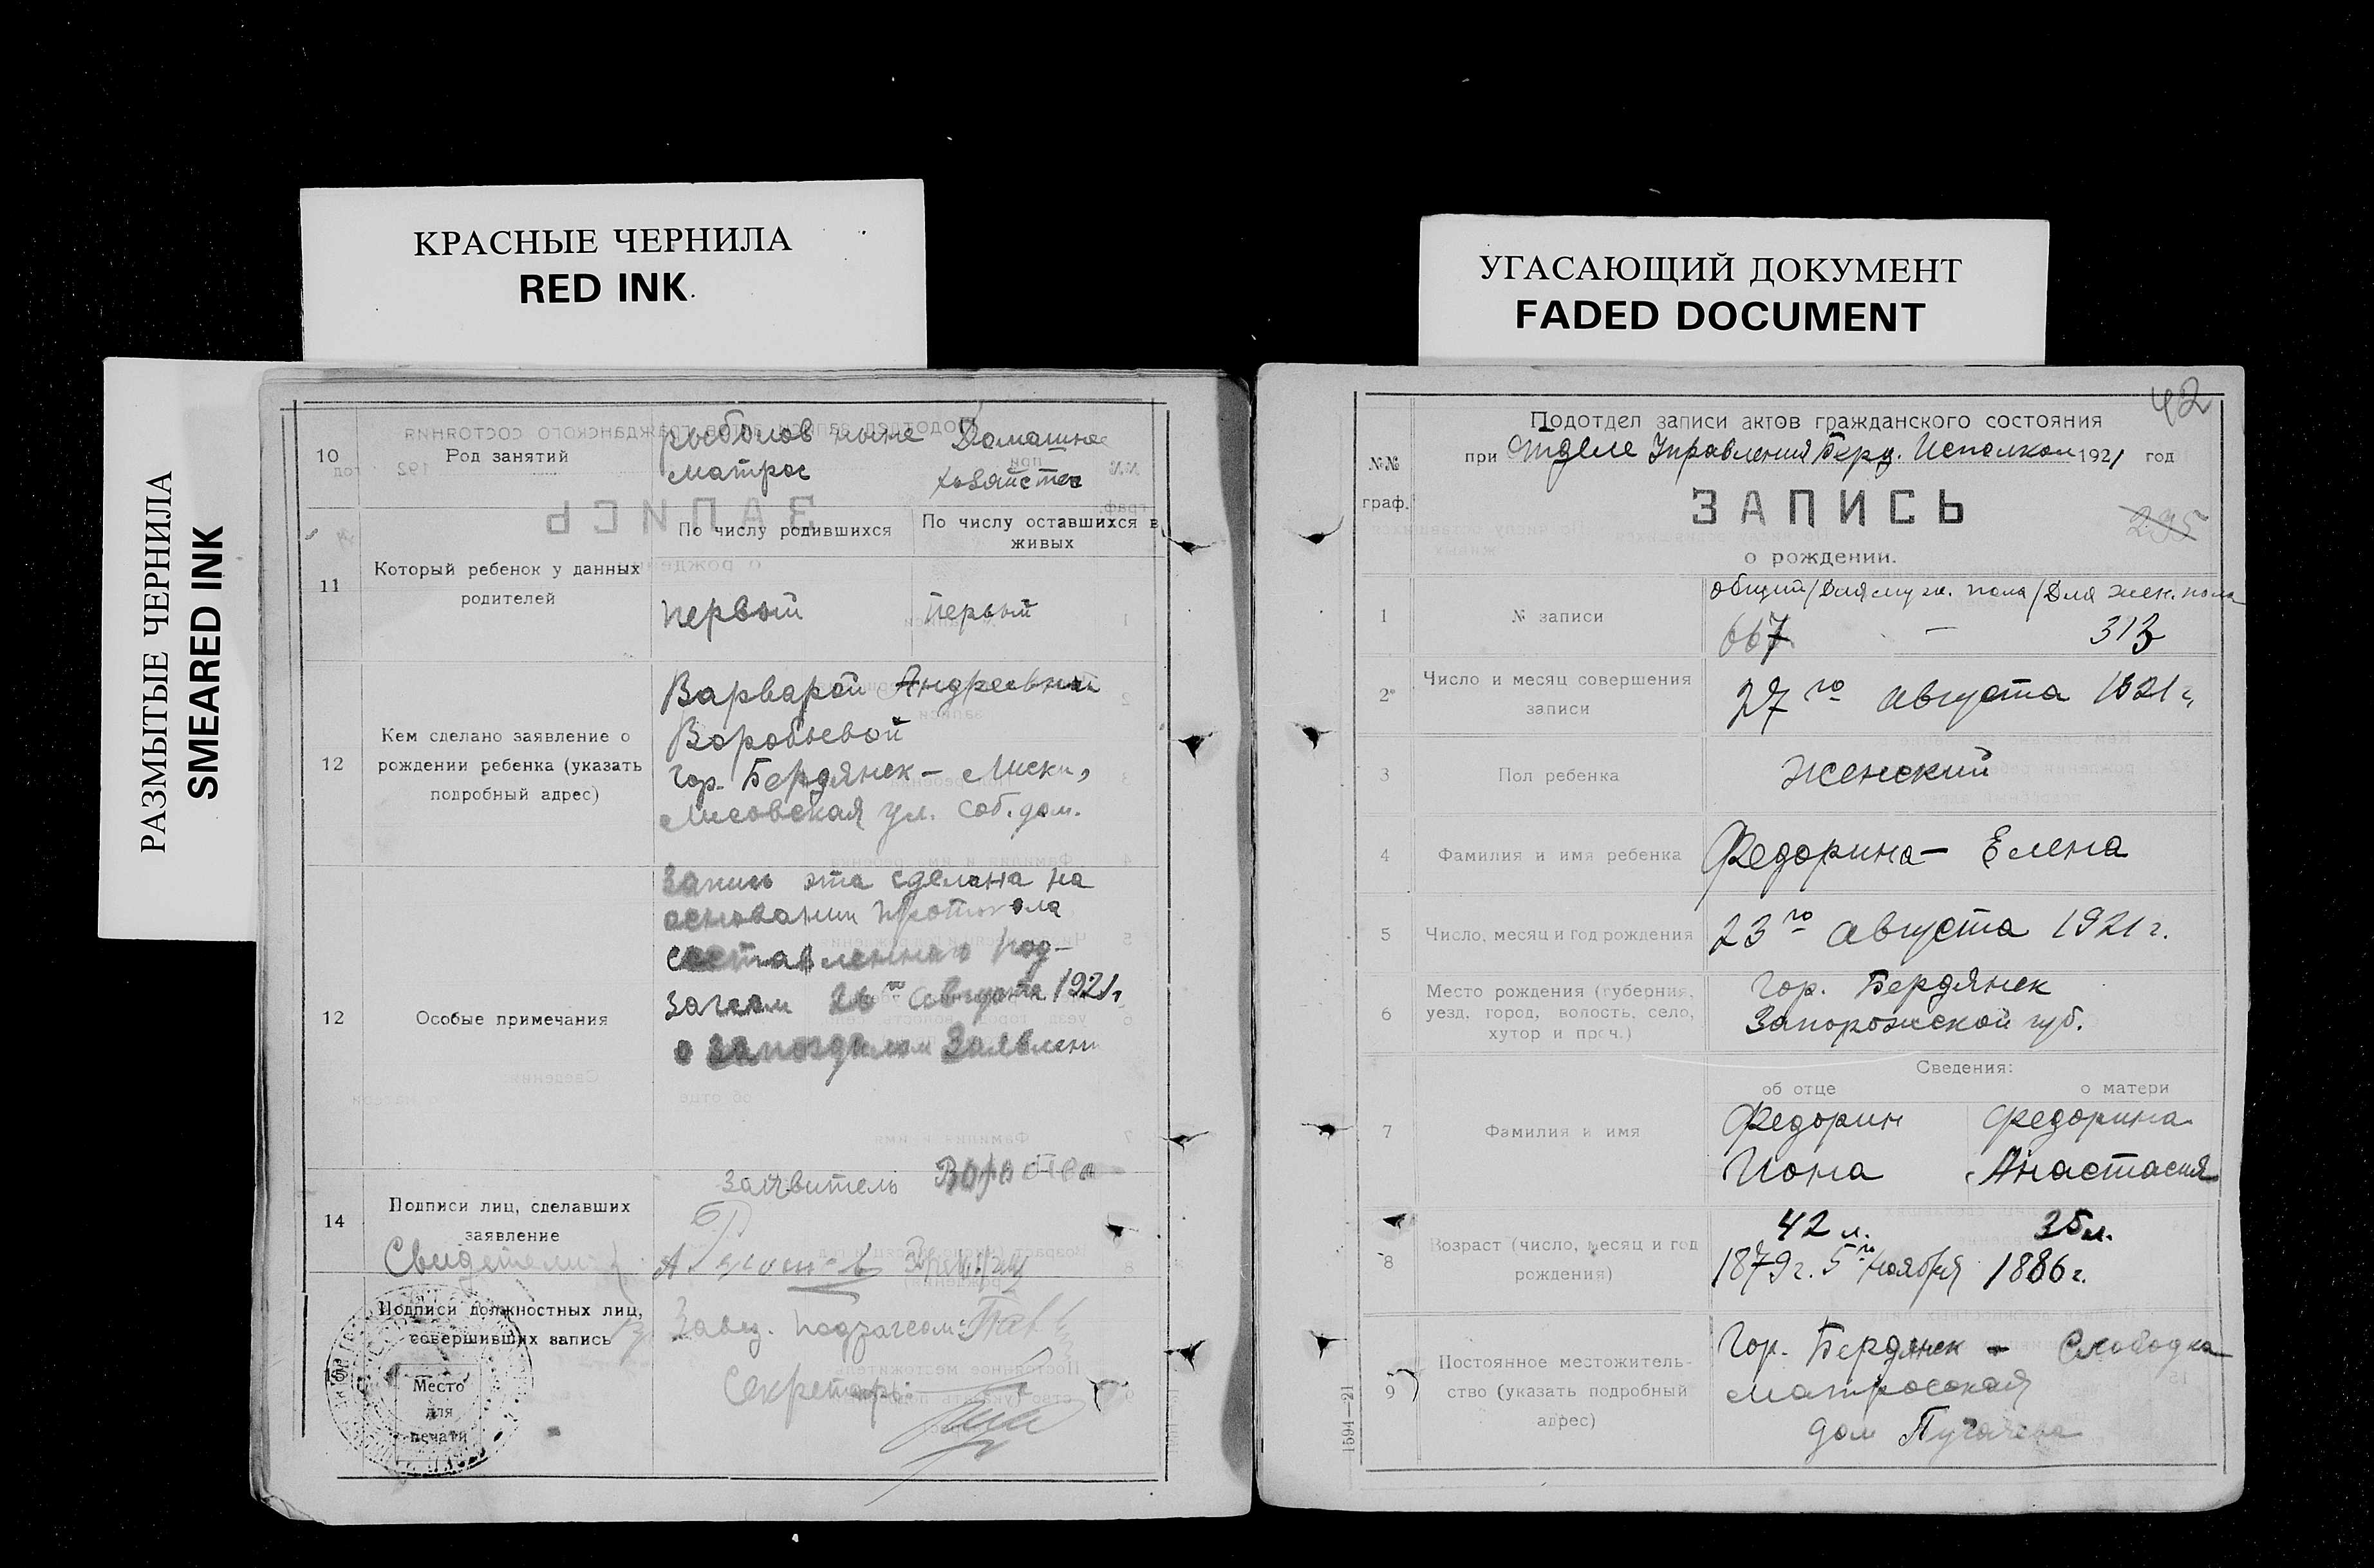 КРАСНЫЕ ЧЕРНИЛА
RED INK
УГАСАЮЩИЙ ДОКУМЕНТ
FADED DOCUMENT
РАЗМЫТЫЕ ЧЕРНИЛА
SMEARED INK
10
Род занятий
рыболов ныне
матрос
Домашнее
хозяйство
По числу родившихся
По числу оставшихся в
живых
11
Который ребенок у данных
родителей
первый
первый
12
Кем сделано заявление о
рождении ребенка (указать
подробный адрес)
Варварой Андреевной
Воробьевой
Гор. Бердянск – Лиски,
Лисовская ул. соб. дом.
12
Особые примечания
Запись эта сделана на
основании протокола
составленного под-
загсом 26го августа 1921г
о запоздалом Заявлени
14
Подписи лиц, сделавших
заявление
Заявитель
Свидетели
15
Подписи должностных лиц,
совершивших запись
Завед. подзагсом:
Секретарь:
Место
для
печати
42
Подотдел записи актов гражданского состояния
при Отделе Управления Берд. Исполком 1921 год
№№
граф.
ЗАПИСЬ
295
о рождении.
1
№ записи
общий/Для муж. пола/Для жен. пола
667 — 313
2
Число и месяц совершения
записи
27го августа 1921 г.
3
Пол ребенка
Женский
4
Фамилия и имя ребенка
Федорина – Елена
5
Число, месяц и год рождения
23го августа 1921 г.
6
Место рождения (губерния,
уезд, город, волость, село,
хутор и проч.)
Гор. Бердянск
Запорожской губ.
Сведения:
об отце
о матери
7
Фамилия и имя
Федорин
Иона
Федорина
Анастасия
8
Возраст (число, месяц и год
рождения)
42 л.
1879 г. 5го ноября
35 л.
1886 г.
9
Постоянное местожитель-
ство (указать подробный
адрес)
Гор. Бердянск – Слободка
матросская
дом Пугачева
1594—21